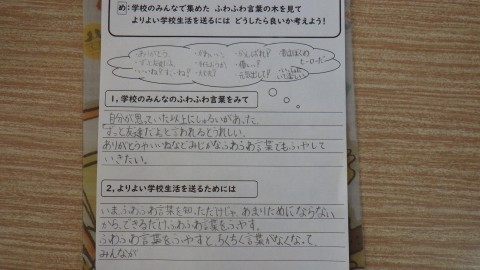 め:学校のみんなで集めた ふわふわ言葉の木を見て
よりよい学校生活を送るには どうしたら良いか考えよう!
ありがとう
がんばれ?
君はぼくの
ヒーローだ
いいね?
大丈夫?
元気出して?
1,学校のみんなのふわふわ言葉をみて
自分が思っていた以上にしゅるいがあった。
ずっと友達だよと言われるとうれしい。
ありがとうやいいねなどみじかなふわふわ言葉でもふやして
いきたい。
2,よりよい学校生活を送るためには
いま、ふわふわ言葉を知っただけじゃ、あまりためにならない
から、できるだけふわふわ言葉をつかやす。
ふわふわ言葉をつかやすと、ちくちく言葉がなくなって、
みんなが